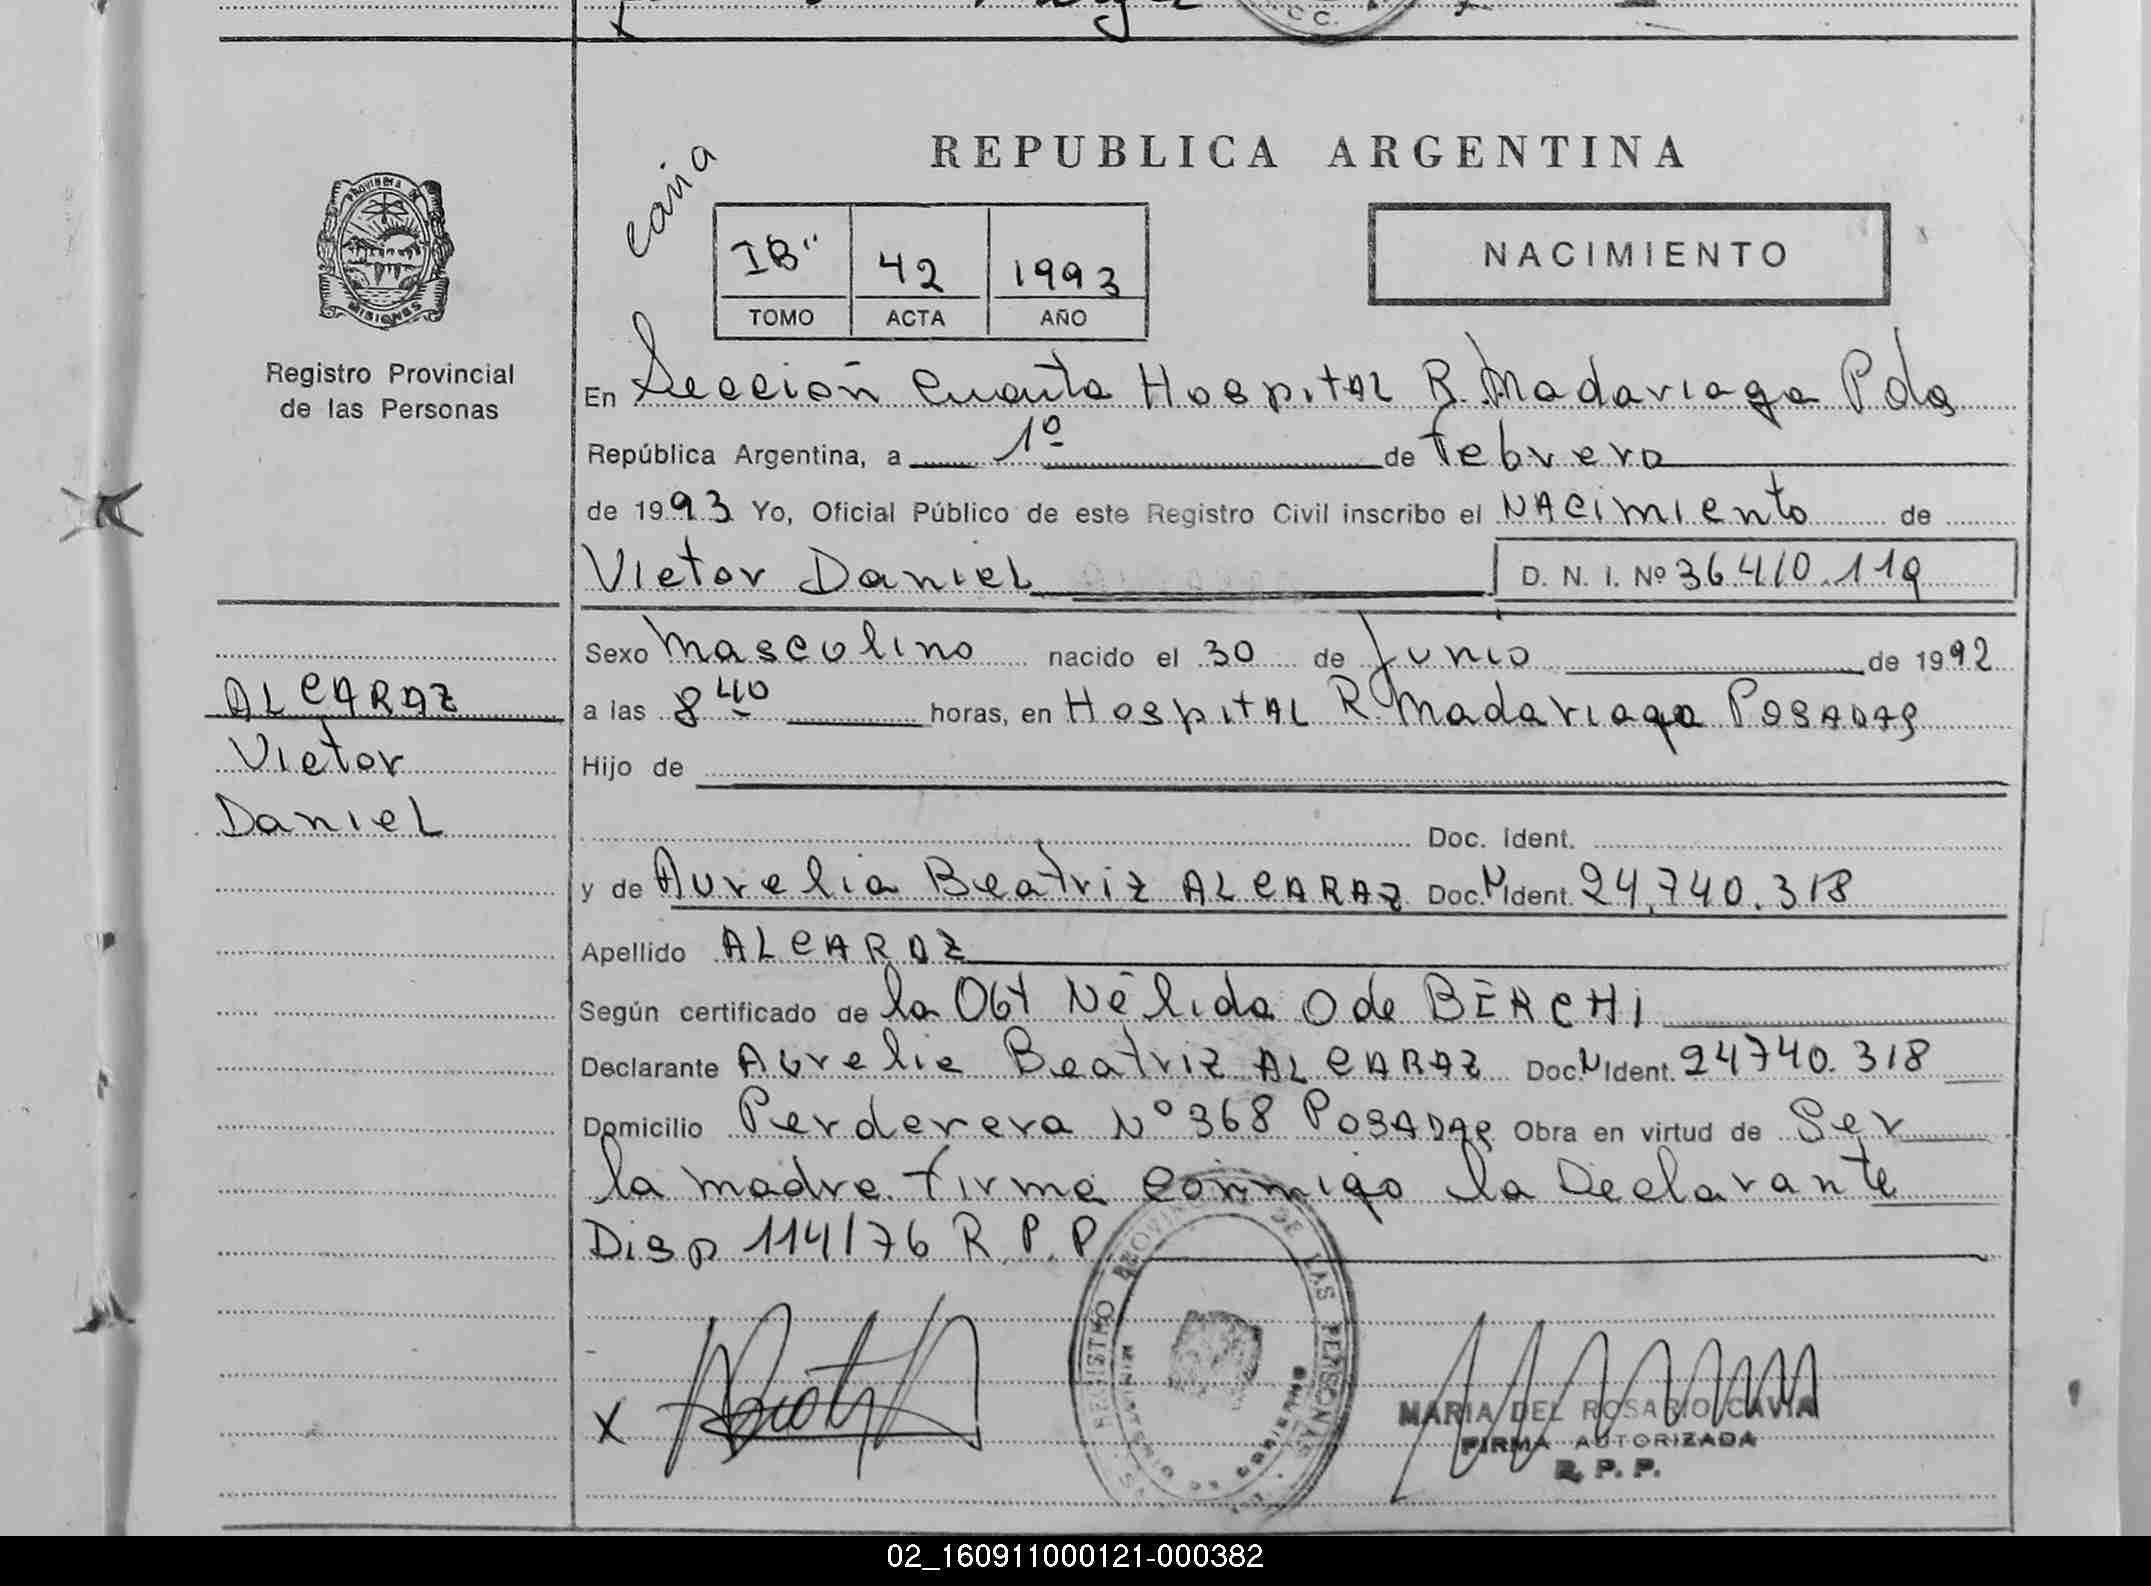 REPUBLICA ARGENTINA
PROVINCIA DE
MISIONES
Registro Provincial
de las Personas
IB" 42 1993
TOMO ACTA AÑO
NACIMIENTO
En Sección Cuarta Hospital R. Madariaga Pdas
República Argentina, a 1º de febrero
de 1993 Yo, Oficial Público de este Registro Civil inscribo el NAcimiento de
Victor Daniel D. N. I. Nº 36410.119
Sexo Mascolino nacido el 30 de Junio de 1992
ALCARAZ
a las 8 40 horas, en Hospital R. Madariaga POSADAS
Victor
Hijo de
Daniel
Doc. Ident.
y de Aurelia Beatriz ALCARAZ Doc. N Ident. 24.740.318
Apellido ALCARAZ
Según certificado de la Obt Nélida O de BERCHI
Declarante Aurelia Beatriz ALCARAZ Doc. N Ident. 24740.318
Domicilio Perderera Nº 368 POSADAS Obra en virtud de Ser
la madre. firma conmigo la Declarante
Disp 114/76 R.P.P
REGISTRO PROVINCIAL DE LAS PERSONAS
MINISTERIO DE GOBIERNO
X
MARIA DEL ROSARIO CAVIA
FIRMA AUTORIZADA
R. P. P.
02_160911000121-000382